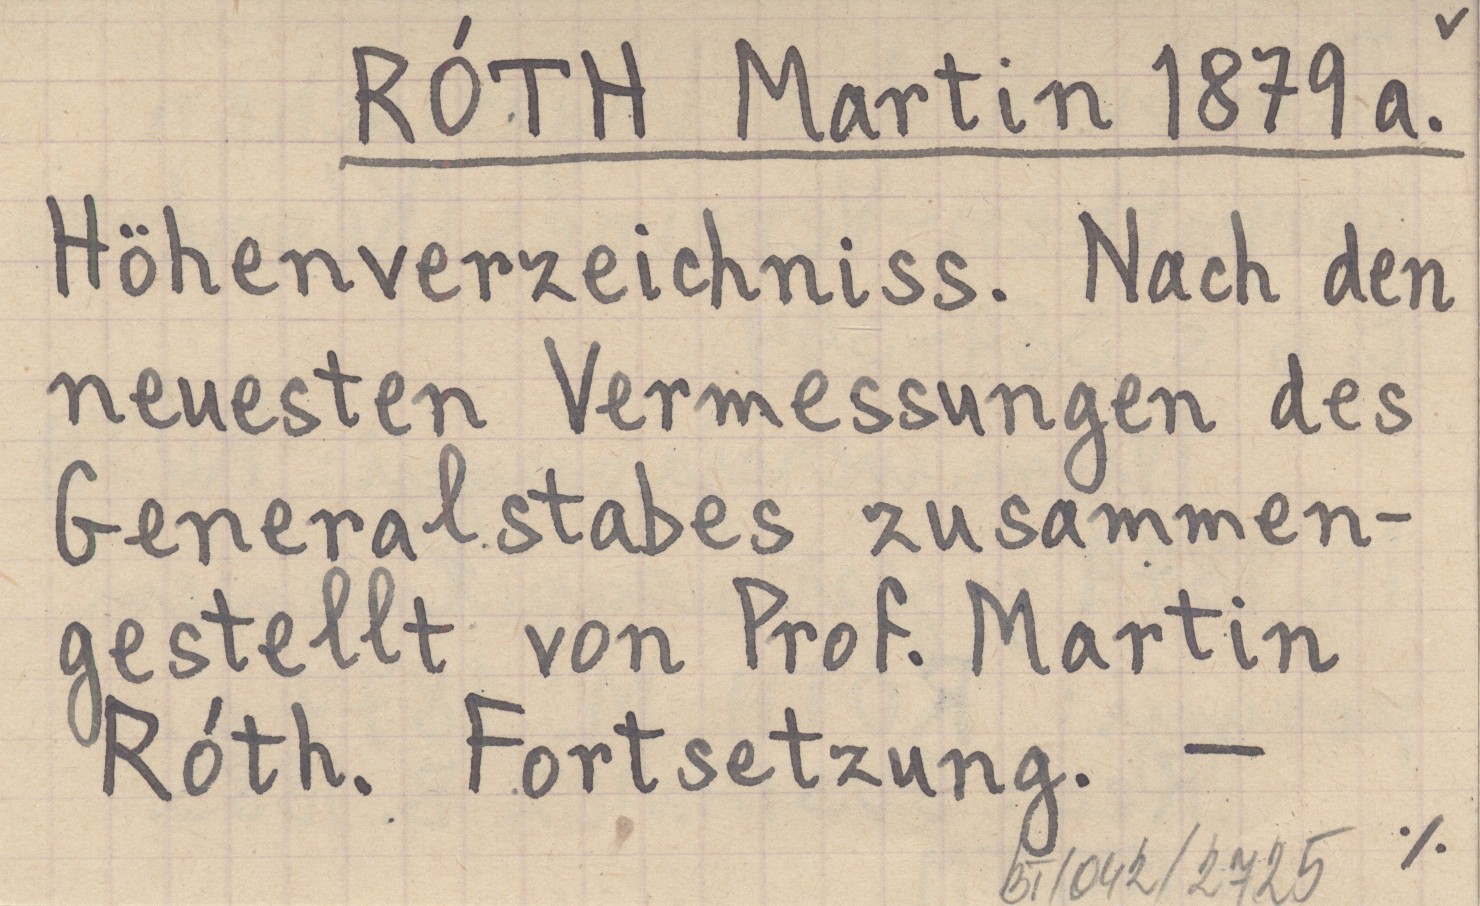 RÓTH Martin 1879a.
Höhenverzeichniss. Nach den
neuesten Vermessungen des
Generalstabes zusammen-
gestellt von Prof. Martin
Róth. Fortsetzung. —
./.
/042/2725